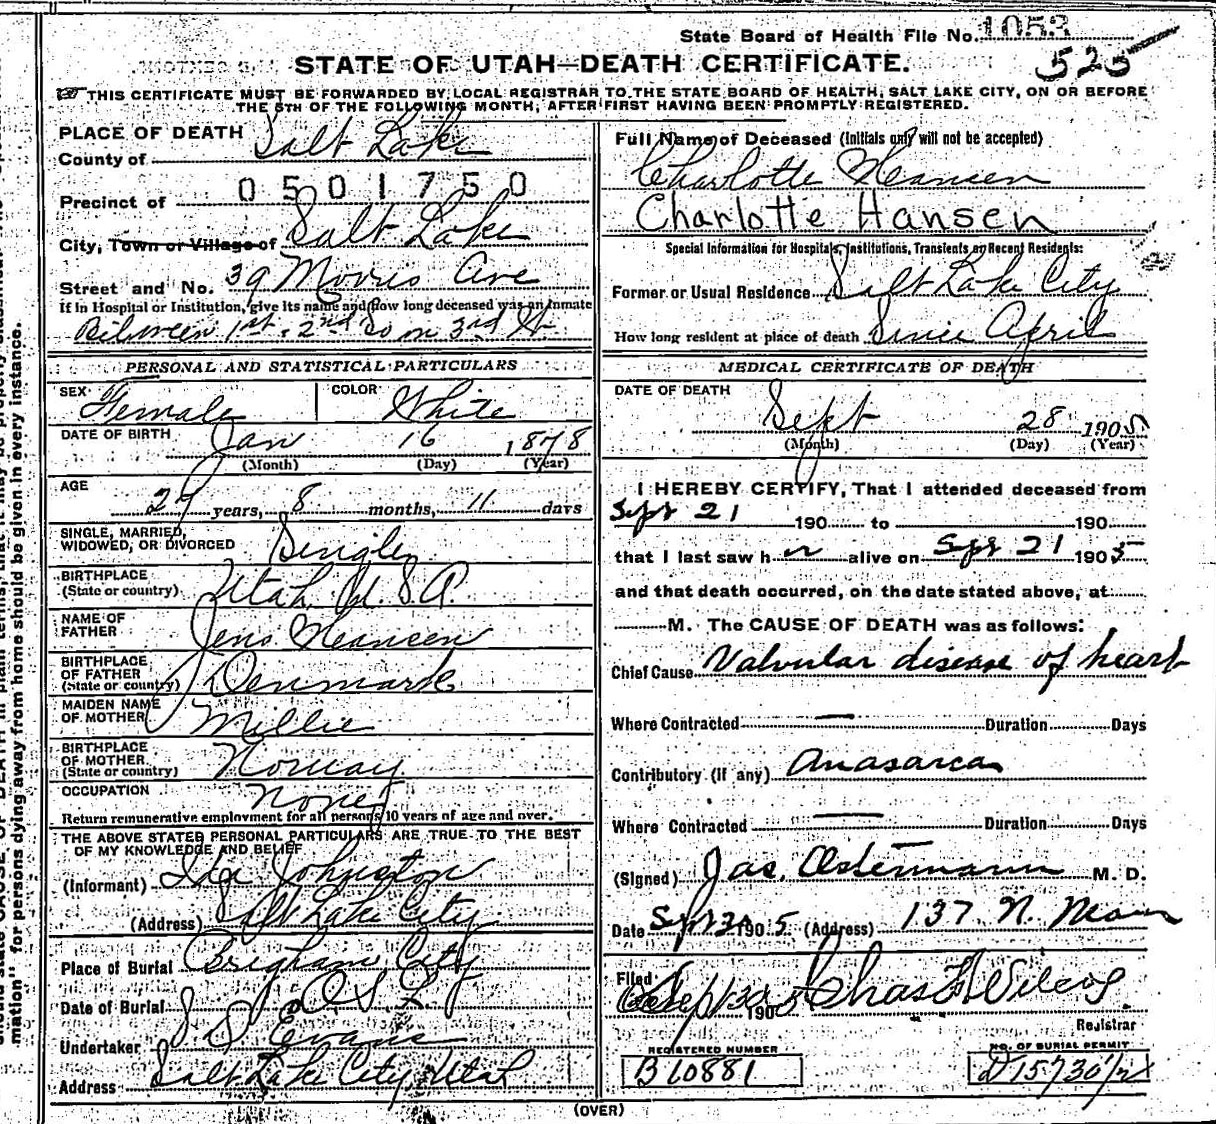 State Board of Health File No. 1053
525
STATE OF UTAH—DEATH CERTIFICATE.
THIS CERTIFICATE MUST BE FORWARDED BY LOCAL REGISTRAR TO THE STATE BOARD OF HEALTH, SALT LAKE CITY, ON OR BEFORE
THE 5TH OF THE FOLLOWING MONTH, AFTER FIRST HAVING BEEN PROMPTLY REGISTERED.
PLACE OF DEATH
County of Salt Lake
Precinct of 0501750
City, Town or Village of Salt Lake
Street and No. 39 Morris Ave
If in Hospital or Institution, give its name and how long deceased was an inmate
Between 1st & 2nd So on 3rd W.
PERSONAL AND STATISTICAL PARTICULARS
SEX Female COLOR White
DATE OF BIRTH Jan 16 1878
(Month) (Day) (Year)
AGE
27 years, 8 months, 11 days
SINGLE, MARRIED,
WIDOWED, OR DIVORCED Single
BIRTHPLACE
(State or country) Utah U.S.A.
NAME OF
FATHER Jens Hansen
BIRTHPLACE
OF FATHER
(State or country) Denmark
MAIDEN NAME
OF MOTHER Millie
BIRTHPLACE
OF MOTHER
(State or country) Norway
OCCUPATION None
Return remunerative employment for all persons 10 years of age and over.
THE ABOVE STATED PERSONAL PARTICULARS ARE TRUE TO THE BEST
OF MY KNOWLEDGE AND BELIEF
(Informant) Ida Johnston
(Address) Salt Lake City
Place of Burial Brigham City
Date of Burial
Undertaker S. D. Evans
Address Salt Lake City Utah
Full Name of Deceased (Initials only will not be accepted)
Charlotte Hansen
Charlotte Hansen
Special Information for Hospitals, Institutions, Transients or Recent Residents:
Former or Usual Residence Salt Lake City
How long resident at place of death Since April
MEDICAL CERTIFICATE OF DEATH
DATE OF DEATH
Sept 28 1905
(Month) (Day) (Year)
I HEREBY CERTIFY, That I attended deceased from
Sept 21 190 to 190
that I last saw her alive on Sept 21 1905
and that death occurred, on the date stated above, at
M. The CAUSE OF DEATH was as follows:
Chief Cause Valvular disease of heart
Where Contracted — Duration Days
Contributory (if any) Anasarca
Where Contracted — Duration Days
(Signed) Jas. Ostermann M. D.
Date Sept 1905 (Address) 137 N. Main
Filed Sept 30 1905 Chas F Wilcox
Registrar
REGISTERED NUMBER
B10881
NO. OF BURIAL PERMIT
(OVER)
mation" for persons dying away from home should be given in every instance.